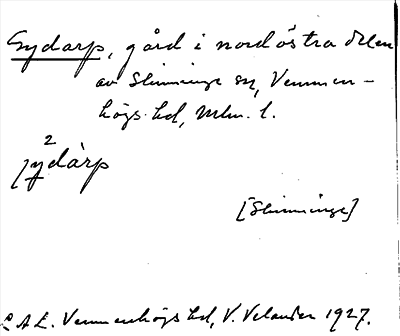 Gydarp, gård i nordöstra delen
av Slimminge sn, Vemmen-
högs hd, Mlm. l.
2
jydàrp
[Slimminge]
L A L. Vemmenhögs hd, V. Velander 1927.